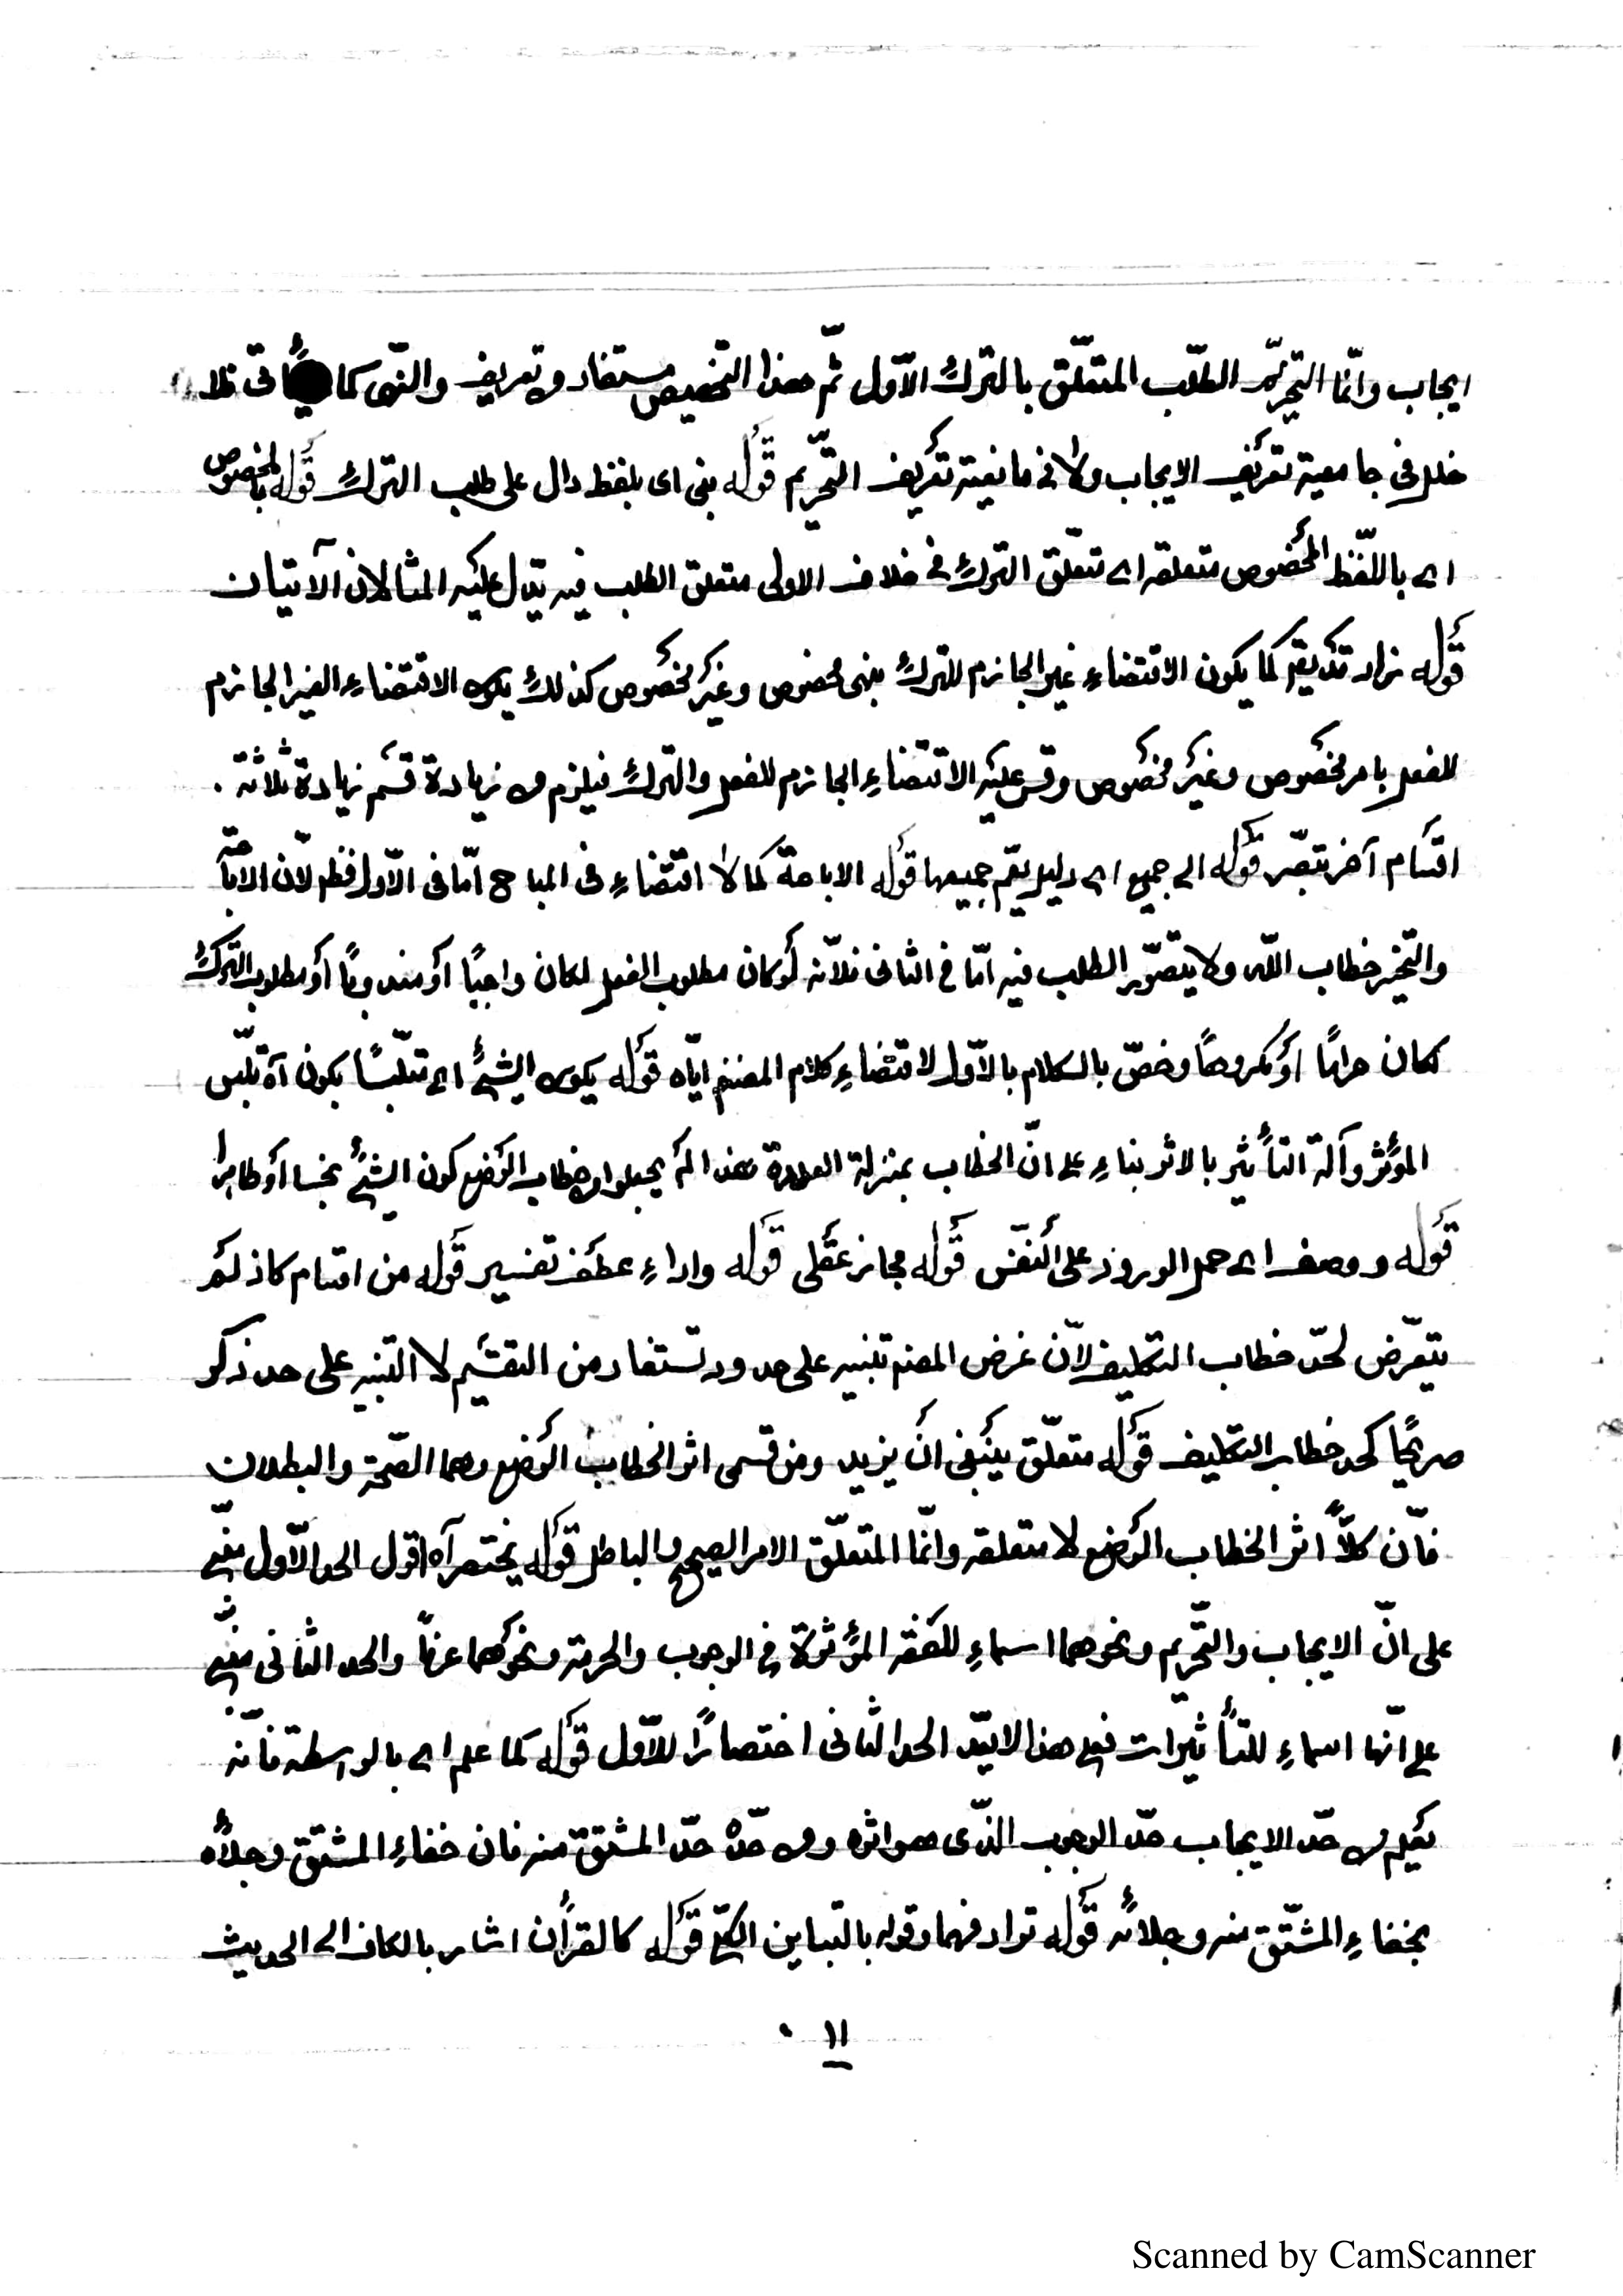 ايجاب وانّما التحريم الطّلب المتعلّق بالترك الاوّل ثمّ هذا التخصيص مستفاد من تعريف والنّهى كما يأتى فلا
خلل فى جامعية تعريف الايجاب ولا فى مانعية تعريف التّحريم قوله بنهى اى بلفظ دال على طلب الترك قوله بالمخصوص
اى باللّفظ المخصوص متعلقه اى تتعلّق الترك فى خلاف الاولى متعلق الطلب فيه يدل عليه المثالان الآتيان
قوله زاد كما يكون الاقتضاء غير الجازم للترك بنهى مخصوص وغير مخصوص كذلك يكون الاقتضاء الغير الجازم
للفعل بامر مخصوص وغير مخصوص وقس عليه الاقتضاء الجازم للفعل والترك فيلزم من زيادة قسم زيادة ثلاثة
اقسام آخر تبصّر قوله الى جميع اى دليل يعم جميعها قوله الاباحة كما لا اقتضاء فى المباح امّا فى الاوّل فظم لانّ الاباحة
والتخيير خطاب اللّه ولا يتصوّر الطلب فيه امّا فى الثانى فلانّه لو كان مطلوب الفعل لكان واجبًا أو مندوبًا أو مطلوب الترك
لكان حرامًا أو مكروهًا وخصّ بالكلام بالاوّل لاقتضاء كلام المصنف ايّاه قوله يكون الشيئ اى متلبّسًا بكون آه تلبّس
المؤثر وآلة التأثير بالاثر بناء على انّ الخطاب بمنزلة العلة هذا لم يجعلوا من خطاب الوضع كون الشيئ نجسا أو طاهرا
قوله ووصف اى حمل الورود على النفس قوله مجاز عقلى قوله واداء عطف تفسير قوله من اقسام كاذلم
يتعرّض لحدّ خطاب التكليف لانّ غرض المصنف تنبيه على حدود تستفاد من التقسيم لا التنبيه على حد ذكر
صريحًا كحد خطاب التكليف قوله متعلّق ينبغى أن يزيد ومن قسمى اثر الخطاب الوضع وهما الصّحة والبطلان
فانّ كلاًّ اثر الخطاب الوضع لا متعلقه وانّما المتعلّق الامر الصحيح والباطل قوله يختصر آه اقول الحد الاوّل مبنىّ
على انّ الايجاب والتّحريم ونحوهما اسماء للصفة المؤثرة فى الوجوب والحرمة ونحوهما عرفاً والحد الثانى مبنىّ
على انّها اسماء للتأثيرات فعلى هذا لا يعدّ الحد الثانى اختصارًا للاوّل قوله كما علم اى بالواسطة فانّه
يعلم من حدّ الايجاب حدّ الوجوب الذّى هو اثره ومن حدّه حدّ المشتق منه فان خفاء المشتق وجلاؤه
بخفاء المشتّق منه وجلائه قوله ترادفهما وقوله بالتباين الكلّى قوله كالقرأن اشار بالكاف الى الحديث
١١
Scanned by CamScanner